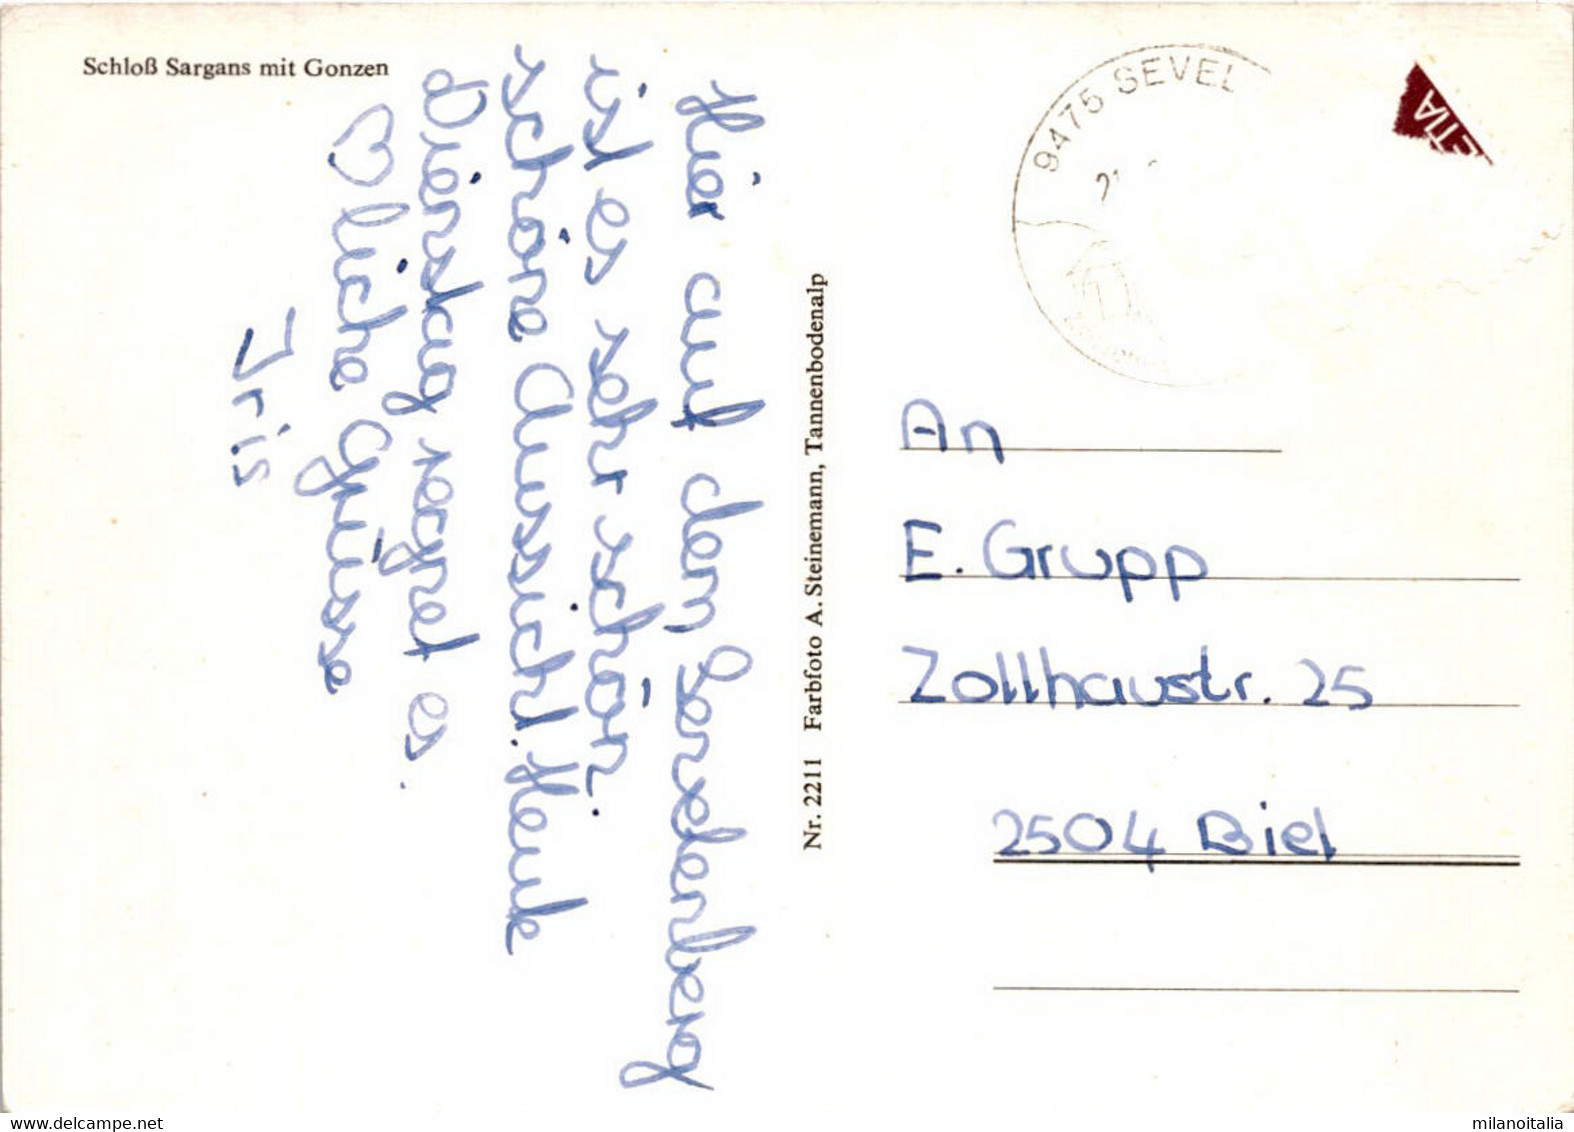 Schloß Sargans mit Gonzen
Hier auf dem Serelenberg
ist es sehr schön.
schöne Aussicht. Heute
Dienstag regnet es.
♡liche Grüsse
Iris
Nr. 2211 Farbfoto A. Steinemann, Tannenbodenalp
9475 SEVEL
An
E. Grupp
Zollhaustr. 25
2504 Biel
www.delcampe.net
milanoitalia